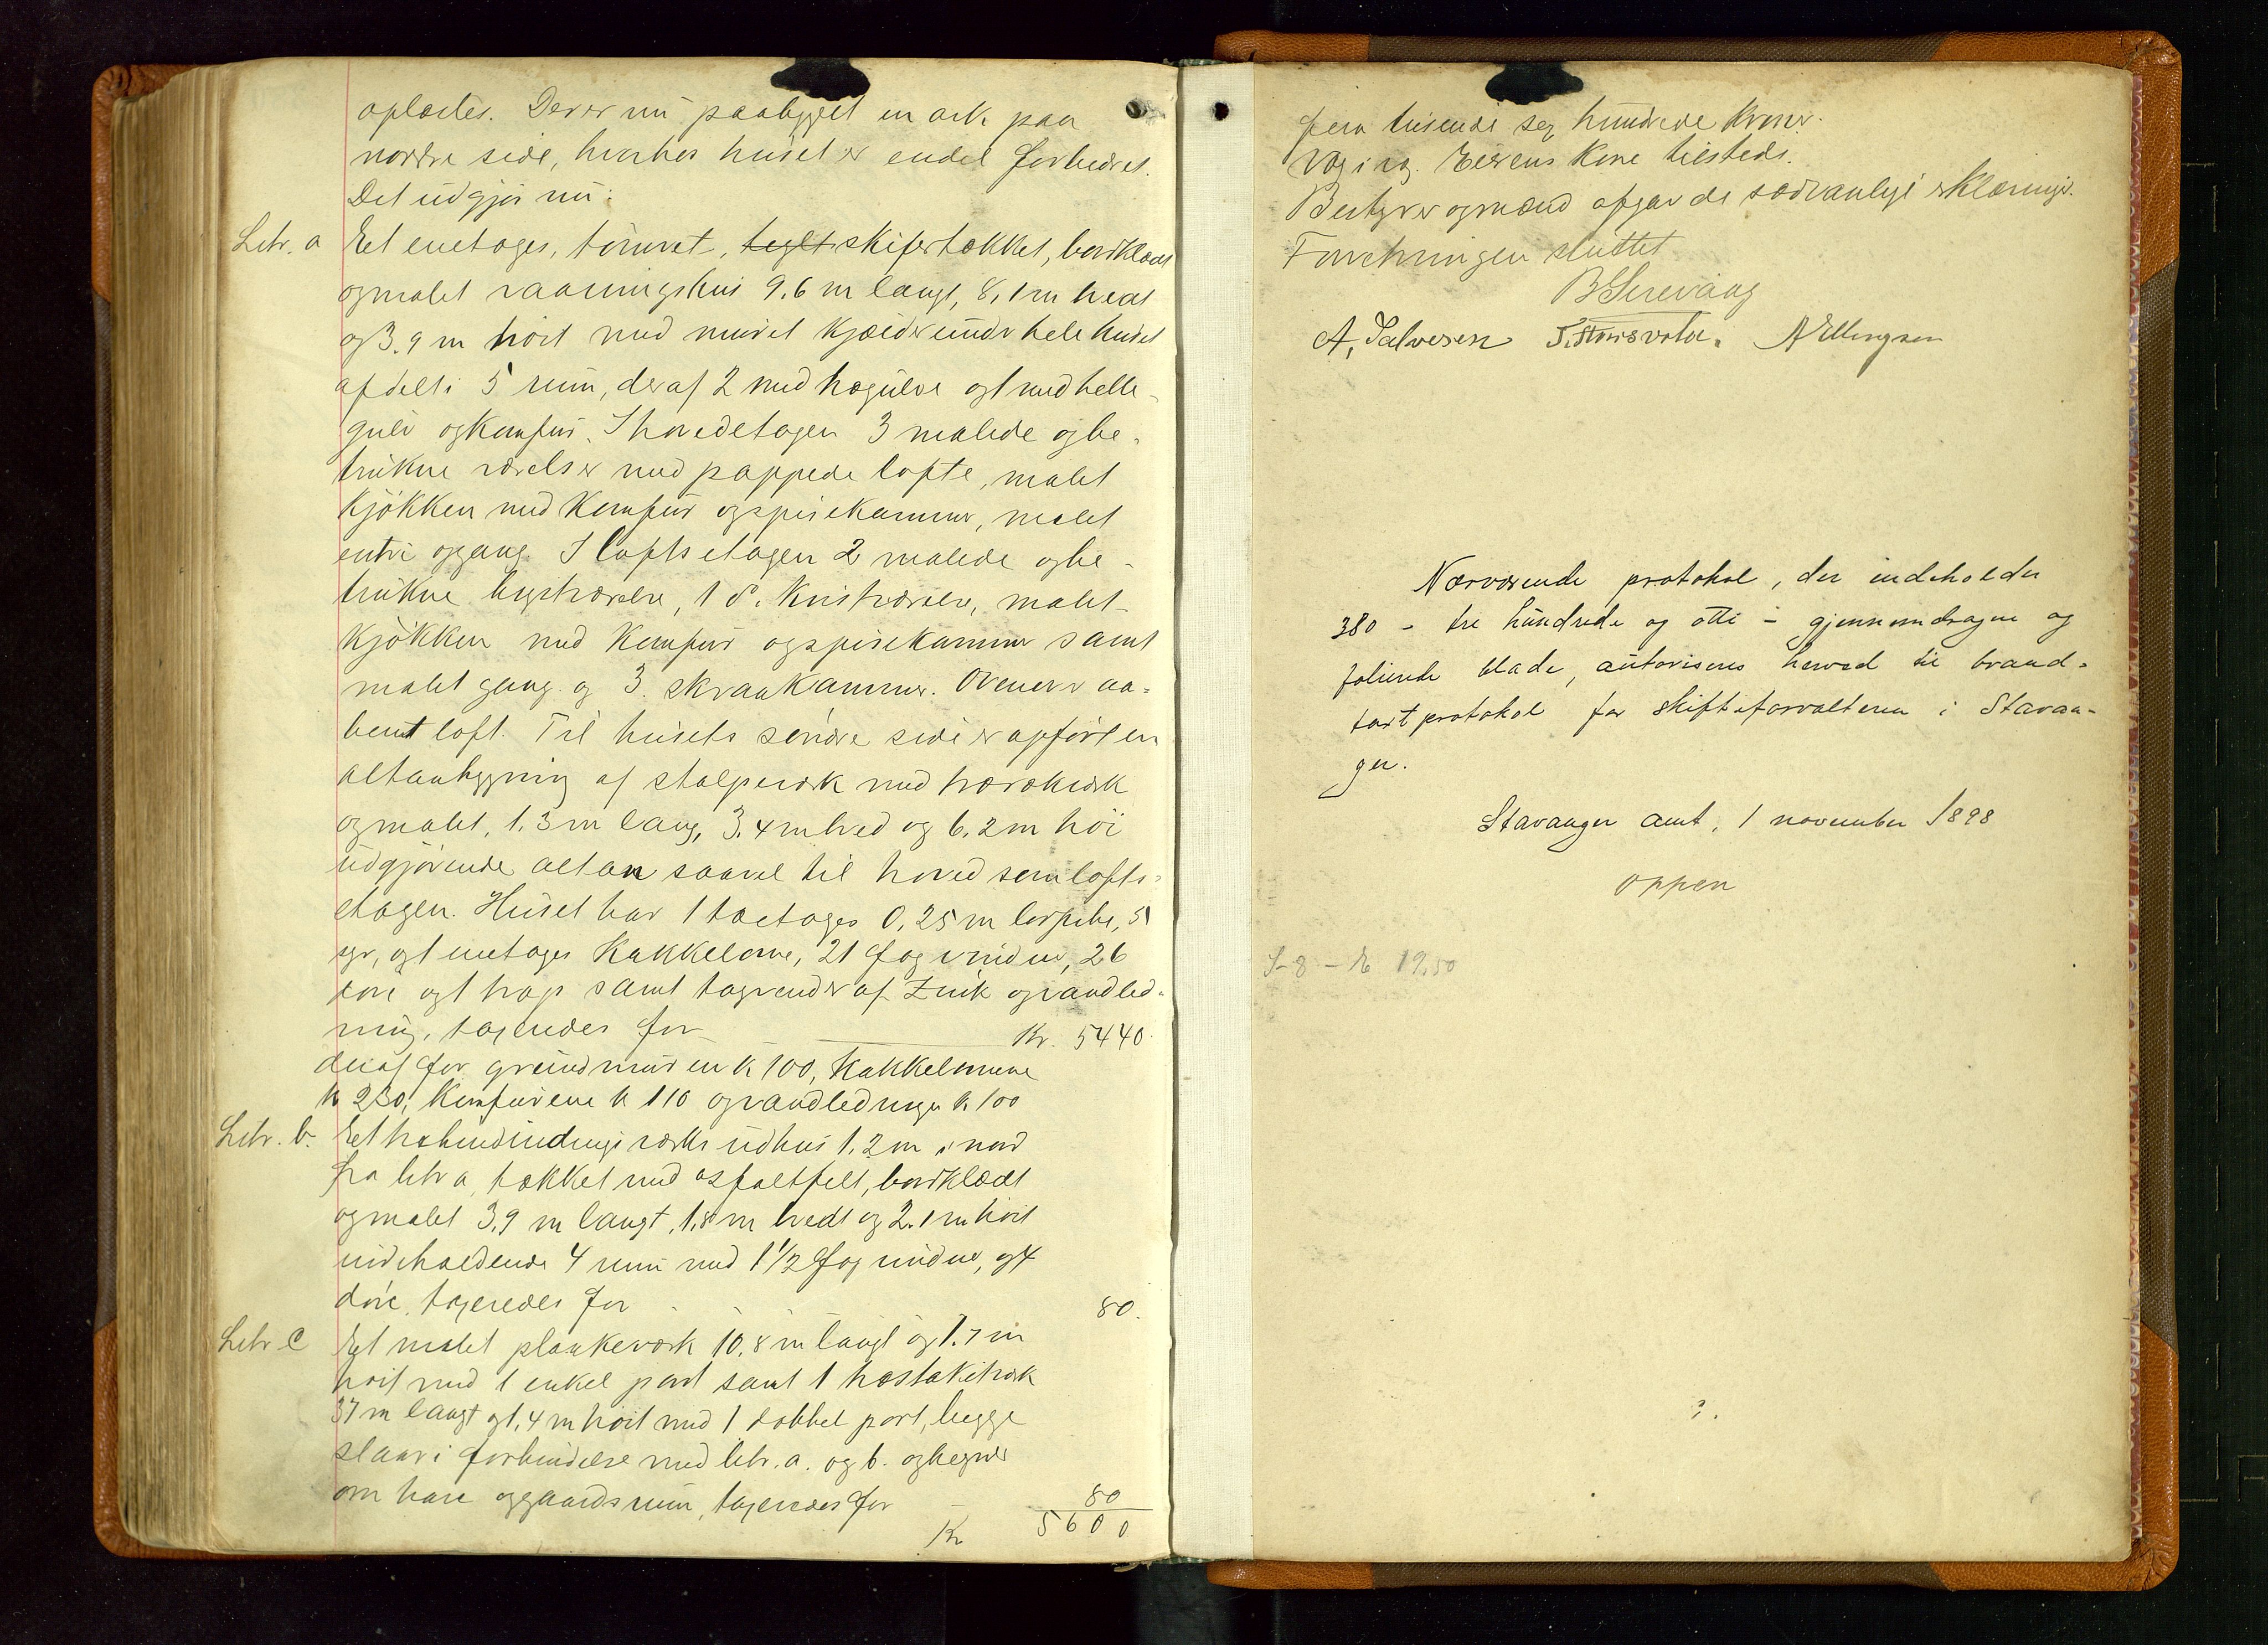 oplæstes. Der er nu paabygget en ark paa
nordre side, hvorhos huset er endel forbedret.
Det udgjør nu:
Litr. a Et enetages, tømret, tegl- skifertækket, bordklædt
og malet vaaningshus 9.6 m langt, 8,1 m bredt
og 3.9 m høit med muret kjælder under hele huset
afdelt i 5 rum, deraf 2 med trægulve og 1 med helle-
gulv og komfur. I hovedetagen 3 malede og be-
trukne værelser med pappede lofte, malet
kjøkken med komfur og spisekammer, malet
entre og gang. I loftsetagen 2 malede og be-
trukne værelser, 1 d. malet
kjøkken med komfur og spisekammer samt
malet gang og 3 skraakammer. Ovenover aa-
bent loft. Til husets søndre side er opført en
altanbygning af stolpeværk med
og malet, 1.3 m lang, 3.4 m bred og 6.2 m høi
udgjørende altan saavel til hoved som lofts-
etagen. Huset har 1 toetages 0,25 m 5
og 1 enetages kakkelovne, 21 fag vinduer, 26
døre og 1 trap samt tagrender af zink og vandled-
ning, taxeredes for Kr. 5440.
deraf for grundmuren k 100, kakkelovnene
k 230, komfurene k 110 og vandledningen k 100
Litr. b. Et udhus 1.2 m i nord
fra litr a, tækket med asfaltfilt, bordklædt
og malet 3.9 m langt, 1.8 m bredt og 2.1 m høit
indeholdende 4 rum med 1 1/2 fag vinduer, og 4
døre, taxeredes for 80.
Litr. c Et malet plankeværk 10.8 m langt og 1.7 m
høit med 1 enkel port samt 1
37 m langt og 1,4 m høit med 1 dobbel port, begge
staar i forbindelse med litr. a. og b. og hegner
om have og gaardsrum, taxeredes for 80
Kr 5600
fem tusende sex hundrede Kroner.
Eierens kone tilstede.
Bestyrer og mænd afgav de sædvanlige erklæringer.
Forretningen sluttet
B Serevaag
A. Salvesen A Ellingsen
Nærværende protokol, der indeholder
380 - tre hundrede og otti - gjennemdragne og
folierede blade, autoriseres herved til brand-
taxtprotokol for skifteforvalteren i Stavan-
ger.
Stavanger amt, 1 november 1898
Oppen
19,50